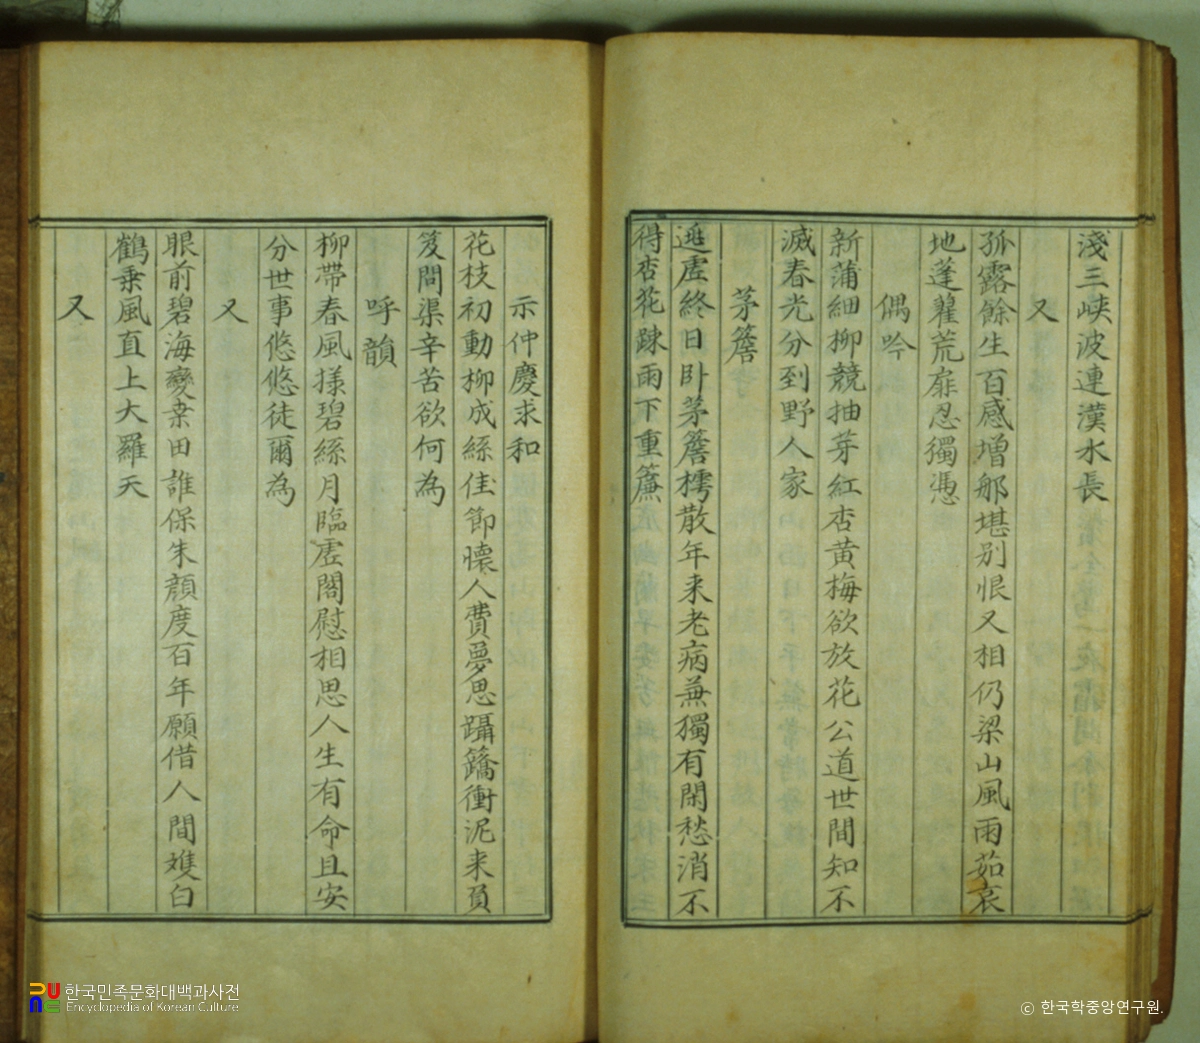 淺三峡波連漢水長
又
孤露餘生百感增那堪别恨又相仍梁山風雨茹哀
地蓬藋荒扉忍獨憑
偶吟
新蒲細柳競抽芽紅杏黄梅欲放花公道世間知不
滅春光分到野人家
茅簷
逃虛終日卧茅簷樗散年来老病兼獨有閑愁消不
得杏花踈雨下重簾
示仲慶求和
花枝初動柳成絲佳節懷人費夢思躡蹻衝泥来負
笈問渠辛苦欲何為
呼韻
柳帶春風㨾碧絲月臨虛閣慰相思人生有命且安
分世事悠悠徒爾為
又
眼前碧海變桒田誰保朱顏度百年願借人間雙白
鶴乗風直上大羅天
又
한국민족문화대백과사전
Encyclopedia of Korean Culture
© 한국학중앙연구원.